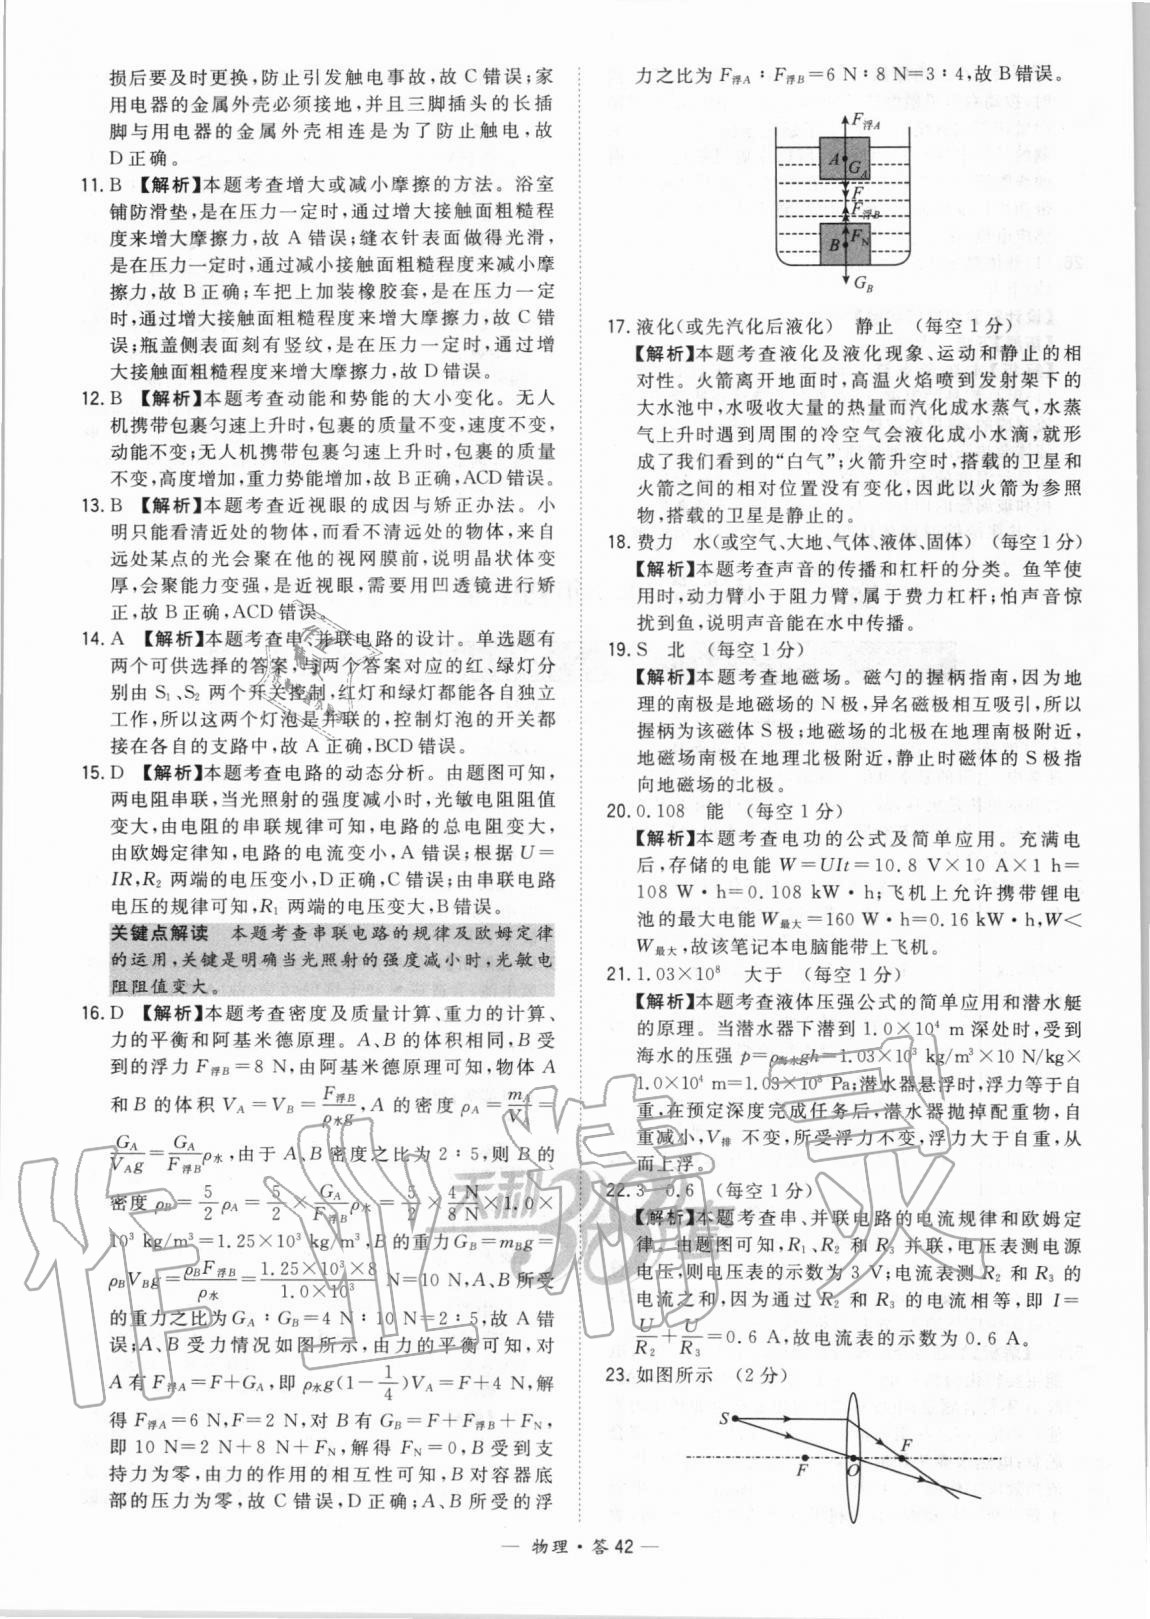 损后要及时更换,防止引发触电事故,故C错误;家
用电器的金属外壳必须接地,并且三脚插头的长插
脚与用电器的金属外壳相连是为了防止触电,故
D正确。
11. B 【解析】本题考查增大或减小摩擦的方法。浴室
铺防滑垫,是在压力一定时,通过增大接触面粗糙程
度来增大摩擦力,故A错误;缝衣针表面做得光滑,
是在压力一定时,通过减小接触面粗糙程度来减小摩
擦力,故B正确;车把上加装橡胶套,是在压力一定
时,通过增大接触面粗糙程度来增大摩擦力,故C错
误;瓶盖侧表面刻有竖纹,是在压力一定时,通过增
大接触面粗糙程度来增大摩擦力,故D错误。
12. B 【解析】本题考查动能和势能的大小变化。无人
机携带包裹匀速上升时,包裹的质量不变,速度不变,
动能不变;无人机携带包裹匀速上升时,包裹的质量
不变,高度增加,重力势能增加,故B正确,ACD错误。
13. B 【解析】本题考查近视眼的成因与矫正办法。小
明只能看清近处的物体,而看不清远处的物体,来自
远处某点的光会聚在他的视网膜前,说明晶状体变
厚,会聚能力变强,是近视眼,需要用凹透镜进行矫
正,故B正确,ACD错误。
14. A 【解析】本题考查串、并联电路的设计。单选题有
两个可供选择的答案,与两个答案对应的红、绿灯分
别由S₁、S₂两个开关控制,红灯和绿灯都能各自独立
工作,所以这两个灯泡是并联的,控制灯泡的开关都
接在各自的支路中,故A正确,BCD错误。
15. D 【解析】本题考查电路的动态分析。由题图可知,
两电阻串联,当光照射的强度减小时,光敏电阻阻值
变大,由电阻的串联规律可知,电路的总电阻变大,
由欧姆定律知,电路的电流变小,A错误;根据U=
IR,R₂两端的电压变小,D正确,C错误;由串联电路
电压的规律可知,R₁两端的电压变大,B错误。
关键点解读 本题考查串联电路的规律及欧姆定律
的运用,关键是明确当光照射的强度减小时,光敏电
阻阻值变大。
16. D 【解析】本题考查密度及质量计算、重力的计算、
力的平衡和阿基米德原理。A、B的体积相同,B受
到的浮力F浮B=8 N,由阿基米德原理可知,物体A
和B的体积V_A=V_B=F浮B/ρ水g,A的密度ρ_A=m_A/V_A=
G_A/V_Ag=G_A/F浮B ρ水,由于A、B密度之比为2:5,则B的
密度ρ_B=5/2ρ_A=5/2×G_A/F浮B ρ水=5/2×4 N/8 N×1.0×
10³ kg/m³=1.25×10³ kg/m³,B的重力G_B=m_Bg=
ρ_BV_Bg=ρ_BF浮B/ρ水=1.25×10³×8/1.0×10³ N=10 N,A、B所受
的重力之比为G_A:G_B=4 N:10 N=2:5,故A错
误;A、B受力情况如图所示,由力的平衡可知,对
A有F浮A=F+G_A,即ρ水g(1-1/4)V_A=F+4 N,解
得F浮A=6 N,F=2 N,对B有G_B=F+F浮B+F_N,
即10 N=2 N+8 N+F_N,解得F_N=0,B受到支
持力为零,由力的作用的相互性可知,B对容器底
部的压力为零,故C错误,D正确;A、B所受的浮
力之比为F浮A:F浮B=6 N:8 N=3:4,故B错误。
F浮A
A
G_A
F
F浮B
B
F_N
G_B
17. 液化(或先汽化后液化) 静止 (每空1分)
【解析】本题考查液化及液化现象、运动和静止的相
对性。火箭离开地面时,高温火焰喷到发射架下的
大水池中,水吸收大量的热量而汽化成水蒸气,水蒸
气上升时遇到周围的冷空气会液化成小水滴,就形
成了我们看到的“白气”;火箭升空时,搭载的卫星和
火箭之间的相对位置没有变化,因此以火箭为参照
物,搭载的卫星是静止的。
18. 费力 水(或空气、大地、气体、液体、固体) (每空1分)
【解析】本题考查声音的传播和杠杆的分类。鱼竿使
用时,动力臂小于阻力臂,属于费力杠杆;怕声音惊
扰到鱼,说明声音能在水中传播。
19. S 北 (每空1分)
【解析】本题考查地磁场。磁勺的握柄指南,因为地
理的南极是地磁场的N极,异名磁极相互吸引,所以
握柄为该磁体S极;地磁场的北极在地理南极附近,
地磁场南极在地理北极附近,静止时磁体的S极指
向地磁场的北极。
20. 0.108 能 (每空1分)
【解析】本题考查电功的公式及简单应用。充满电
后,存储的电能W=UIt=10.8 V×10 A×1 h=
108 W·h=0.108 kW·h;飞机上允许携带锂电
池的最大电能W最大=160 W·h=0.16 kW·h,W<
W最大,故该笔记本电脑能带上飞机。
21. 1.03×10⁸ 大于 (每空1分)
【解析】本题考查液体压强公式的简单应用和潜水艇
的原理。当潜水器下潜到1.0×10⁴ m深处时,受到
海水的压强p=ρ海水gh=1.03×10³ kg/m³×10 N/kg×
1.0×10⁴ m=1.03×10⁸ Pa;潜水器悬浮时,浮力等于自
重,在预定深度完成任务后,潜水器抛掉配重物,自
重减小,V排不变,所受浮力不变,浮力大于自重,从
而上浮。
22. 3 0.6 (每空1分)
【解析】本题考查串、并联电路的电流规律和欧姆定
律。由题图可知,R₁、R₂和R₃并联,电压表测电源
电压,则电压表的示数为3 V;电流表测R₂和R₃的
电流之和,因为通过R₂和R₃的电流相等,即I=
U/R₂+U/R₃=0.6 A,故电流表的示数为0.6 A。
23. 如图所示 (2分)
S
F
O
F
— 物理·答42 —
作业精灵
天利38套